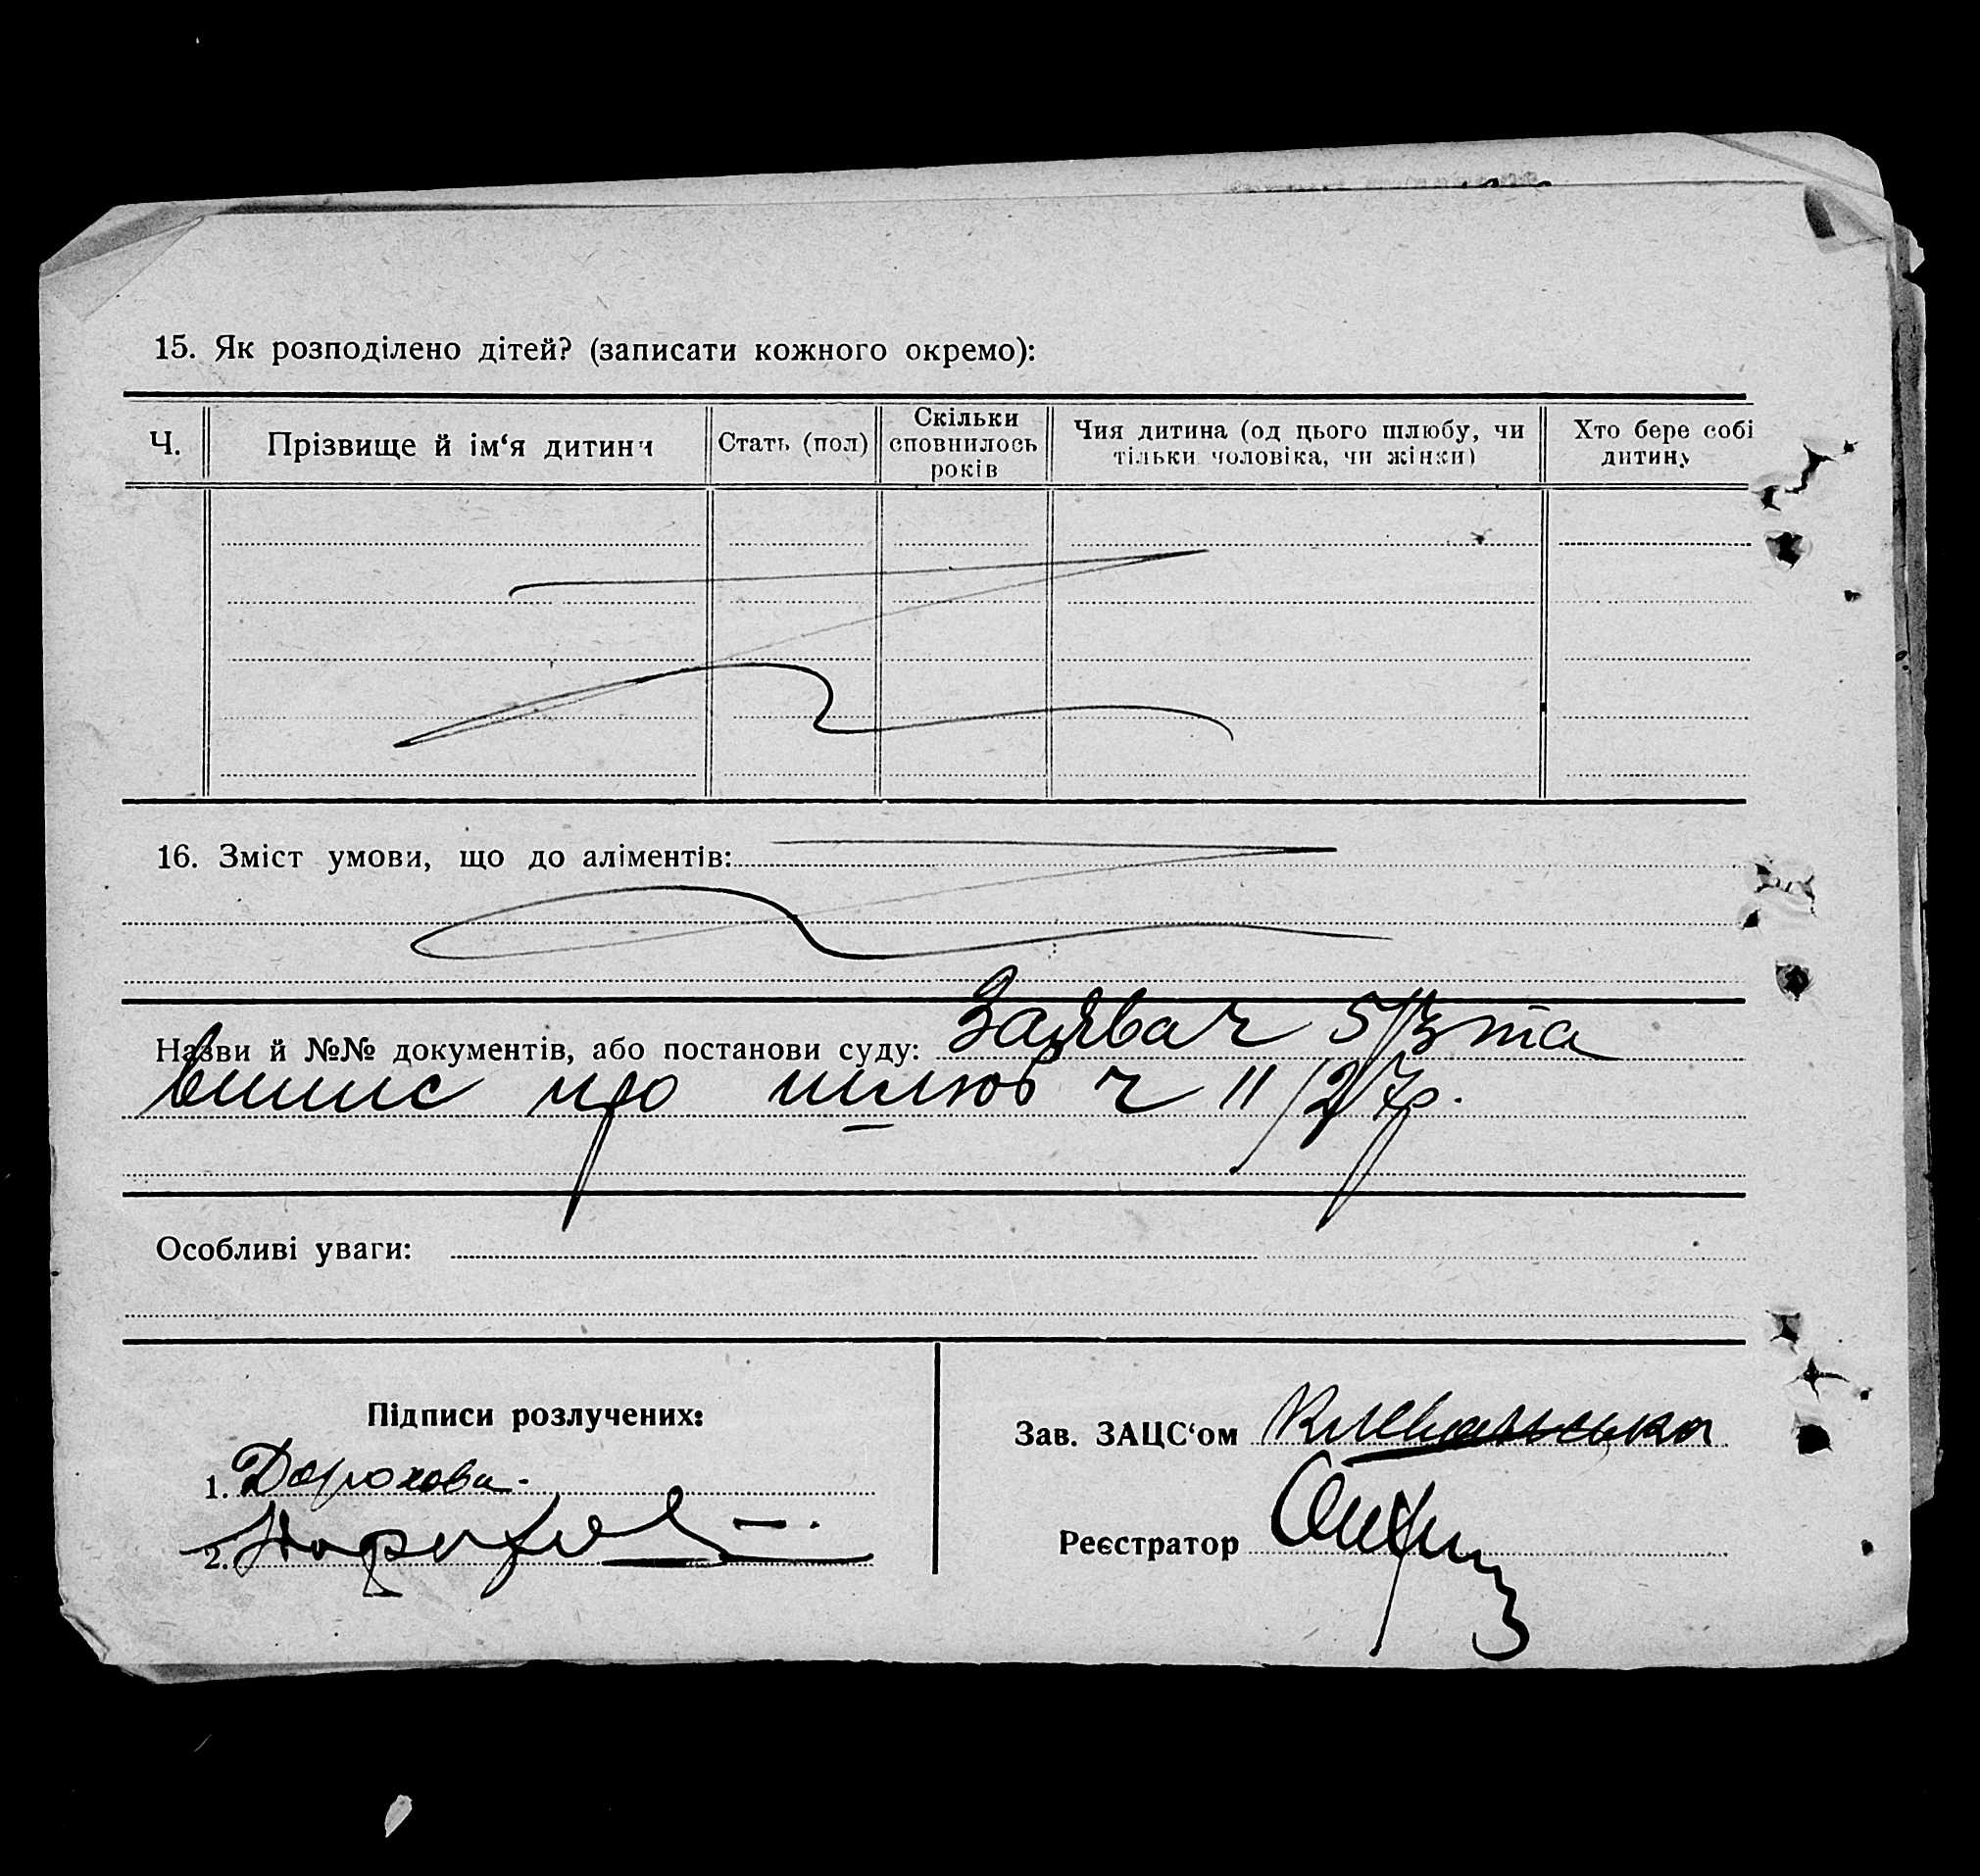 15. Як розподілено дітей? (записати кожного окремо):
Ч.
Прізвище й ім‘я дитини
Стать (пол)
Скільки
сповнилось
років
Чия дитина (од цього шлюбу, чи
тільки чоловіка, чи жінки)
Хто бере собі
дитину
16. Зміст умови, що до аліментів:
Назви й №№ документів, або постанови суду: Заява ч 5/3 та
випис про шлюб ч 11/27р.
Особливі уваги:
Підписи розлучених:
1. Дорохова
2.
Зав. ЗАЦС‘ом
Реєстратор